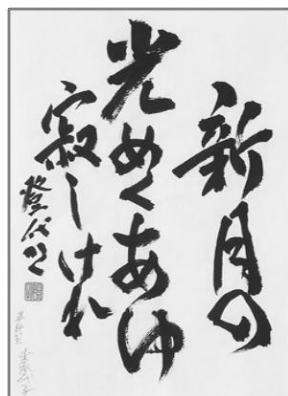 新月の
光めくあゆ
寂しけれ
登代